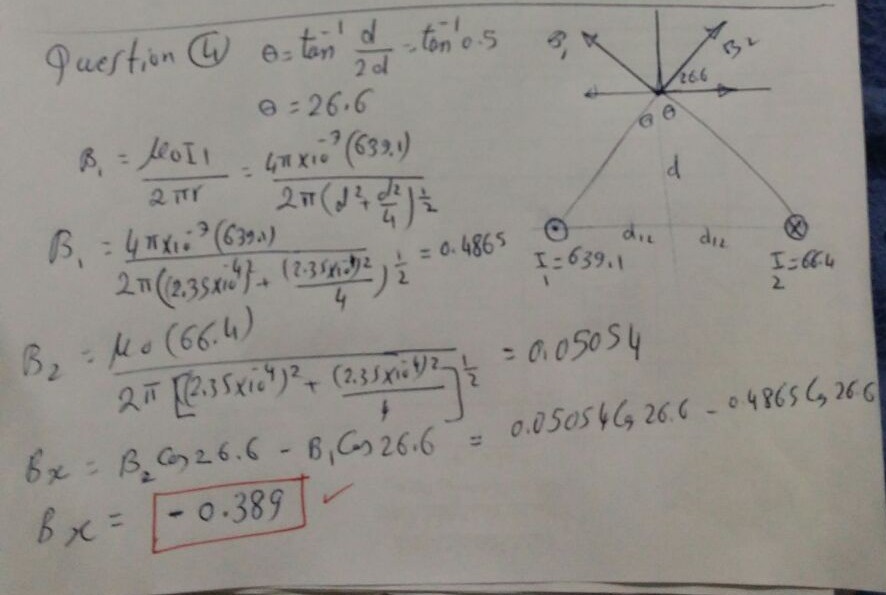 Question (4) θ = tan⁻¹ d/2d = tan⁻¹ 0.5
θ = 26.6
B₁ = μ₀I₁/2πr = 4π×10⁻⁷(639.1)/2π(d² + d²/4)^1/2
B₁ = 4π×10⁻⁷(639.1)/2π((2.35×10⁻⁴)² + (2.35×10⁻⁴)²/4)^1/2 = 0.4865
B₂ = μ₀(66.4)/2π[(2.35×10⁻⁴)² + (2.35×10⁻⁴)²/4]^1/2 = 0.05054
Bx = B₂ Cos 26.6 - B₁ Cos 26.6 = 0.05054 Cos 26.6 - 0.4865 Cos 26.6
Bx = - 0.389 ✓
B₁ B₂
26.6
θ θ
d
d/2 d/2
I₁ = 639.1 I₂ = 66.4